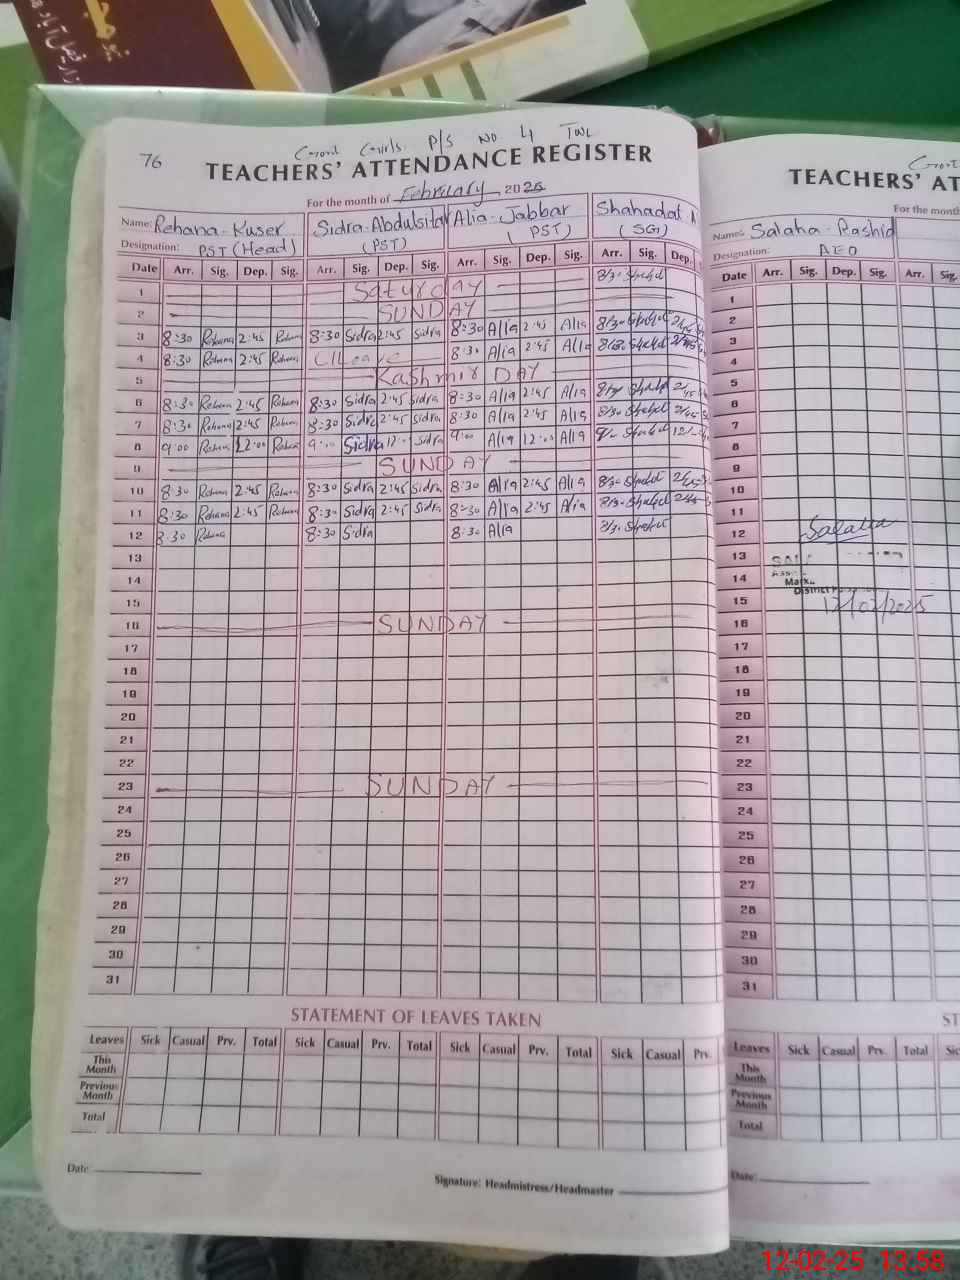 76
Govt Girls P/S No 4 TWL
TEACHERS' ATTENDANCE REGISTER
For the month of February 2025
Name: Rehana Kuser Sidra Abdulsitar Alia Jabbar Shahadat
Designation: PST (Head) (PST) (PST) (SG)
Date Arr. Sig. Dep. Sig. Arr. Sig. Dep. Sig. Arr. Sig. Dep. Sig. Arr. Sig. Dep.
1 Saturday
2 SUNDAY
3 8:30 Rehana 2:45 Rehana 8:30 Sidra 2:45 Sidra 8:30 Alia 2:45 Alia
4 8:30 Rehana 2:45 Rehana C/Leave 8:30 Alia 2:45 Alia
5 Kashmir DAY
6 8:30 Rehana 2:45 Rehana 8:30 Sidra 2:45 Sidra 8:30 Alia 2:45 Alia
7 8:30 Rehana 2:45 Rehana 8:30 Sidra 2:45 Sidra 8:30 Alia 2:45 Alia
8 9:00 Rehana 12:00 Rehana 9:00 Sidra 12:00 Sidra 9:00 Alia 12:00 Alia
9 SUNDAY
10 8:30 Rehana 2:45 Rehana 8:30 Sidra 2:45 Sidra 8:30 Alia 2:45 Alia
11 8:30 Rehana 2:45 Rehana 8:30 Sidra 2:45 Sidra 8:30 Alia 2:45 Alia
12 8:30 Rehana 8:30 Sidra 8:30 Alia
13
14
15
16 SUNDAY
17
18
19
20
21
22
23 SUNDAY
24
25
26
27
28
29
30
31
STATEMENT OF LEAVES TAKEN
Leaves Sick Casual Prv. Total Sick Casual Prv. Total Sick Casual Prv. Total Sick Casual Prv.
This Month
Previous Month
Total
Date:
Signature: Headmistress/Headmaster
Govt
TEACHERS' AT
For the month
Name: Salaha Rashid
Designation: AEO
Date Arr. Sig. Dep. Sig. Arr. Sig.
1
2
3
4
5
6
7
8
9
10
11
12 Salaha
13
14
15 12/02/2025
16
17
18
19
20
21
22
23
24
25
26
27
28
29
30
31
ST
Leaves Sick Casual Prv. Total
This Month
Previous Month
Total
Date:
12-02-25 13:58